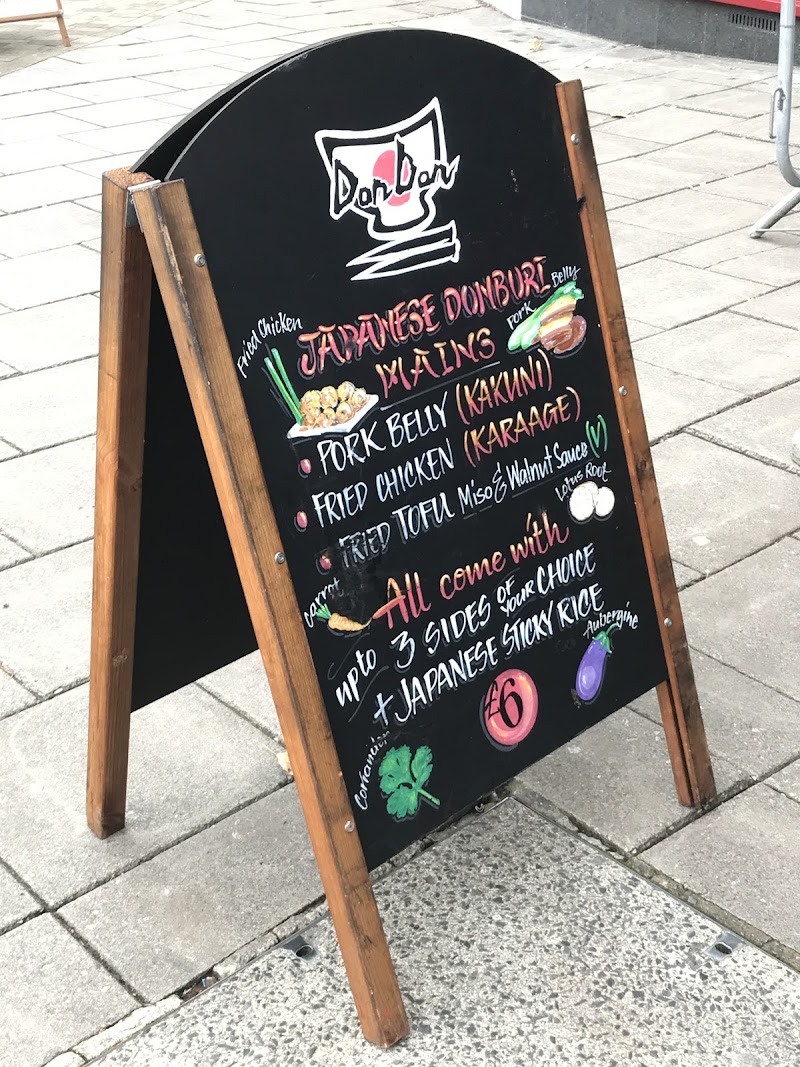 Don Don
Fried Chicken
JAPANESE DONBURI
MAINS
Pork Belly
PORK BELLY (KAKUNI)
FRIED CHICKEN (KARAAGE)
FRIED TOFU Miso & Walnut Sauce (V)
Lotus Root
Carrot
All come with
upto 3 SIDES OF YOUR CHOICE
+ JAPANESE STICKY RICE
Aubergine
£6
Coriander